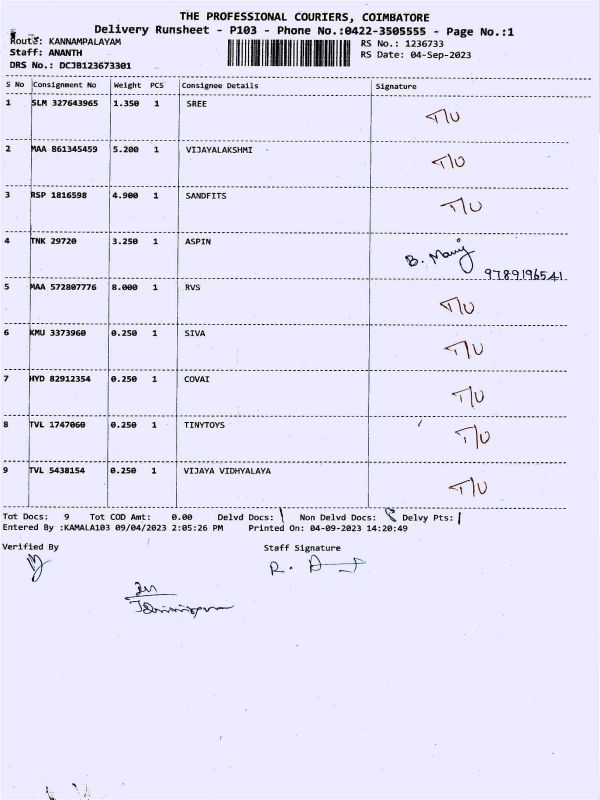 THE PROFESSIONAL COURIERS, COIMBATORE
Delivery Runsheet - P103 - Phone No.:0422-3505555 - Page No.:1
Route: KANNAMPALAYAM RS No.: 1236733
Staff: ANANTH RS Date: 04-Sep-2023
DRS No.: DCJB123673301
S No Consignment No Weight PCS Consignee Details Signature
1 SLM 327643965 1.350 1 SREE T/U
2 MAA 861345459 5.200 1 VIJAYALAKSHMI T/U
3 RSP 1816598 4.900 1 SANDFITS T/U
4 TNK 29720 3.250 1 ASPIN B. Manij 9789196541
5 MAA 572807776 8.000 1 RVS T/U
6 KMU 3373960 0.250 1 SIVA T/U
7 HYD 82912354 0.250 1 COVAI T/U
8 TVL 1747060 0.250 1 TINYTOYS T/U
9 TVL 5438154 0.250 1 VIJAYA VIDHYALAYA T/U
Tot Docs: 9 Tot COD Amt: 0.00 Delvd Docs: 1 Non Delvd Docs: 8 Delvy Pts: 1
Entered By :KAMALA103 09/04/2023 2:05:26 PM Printed On: 04-09-2023 14:20:49
Verified By Staff Signature